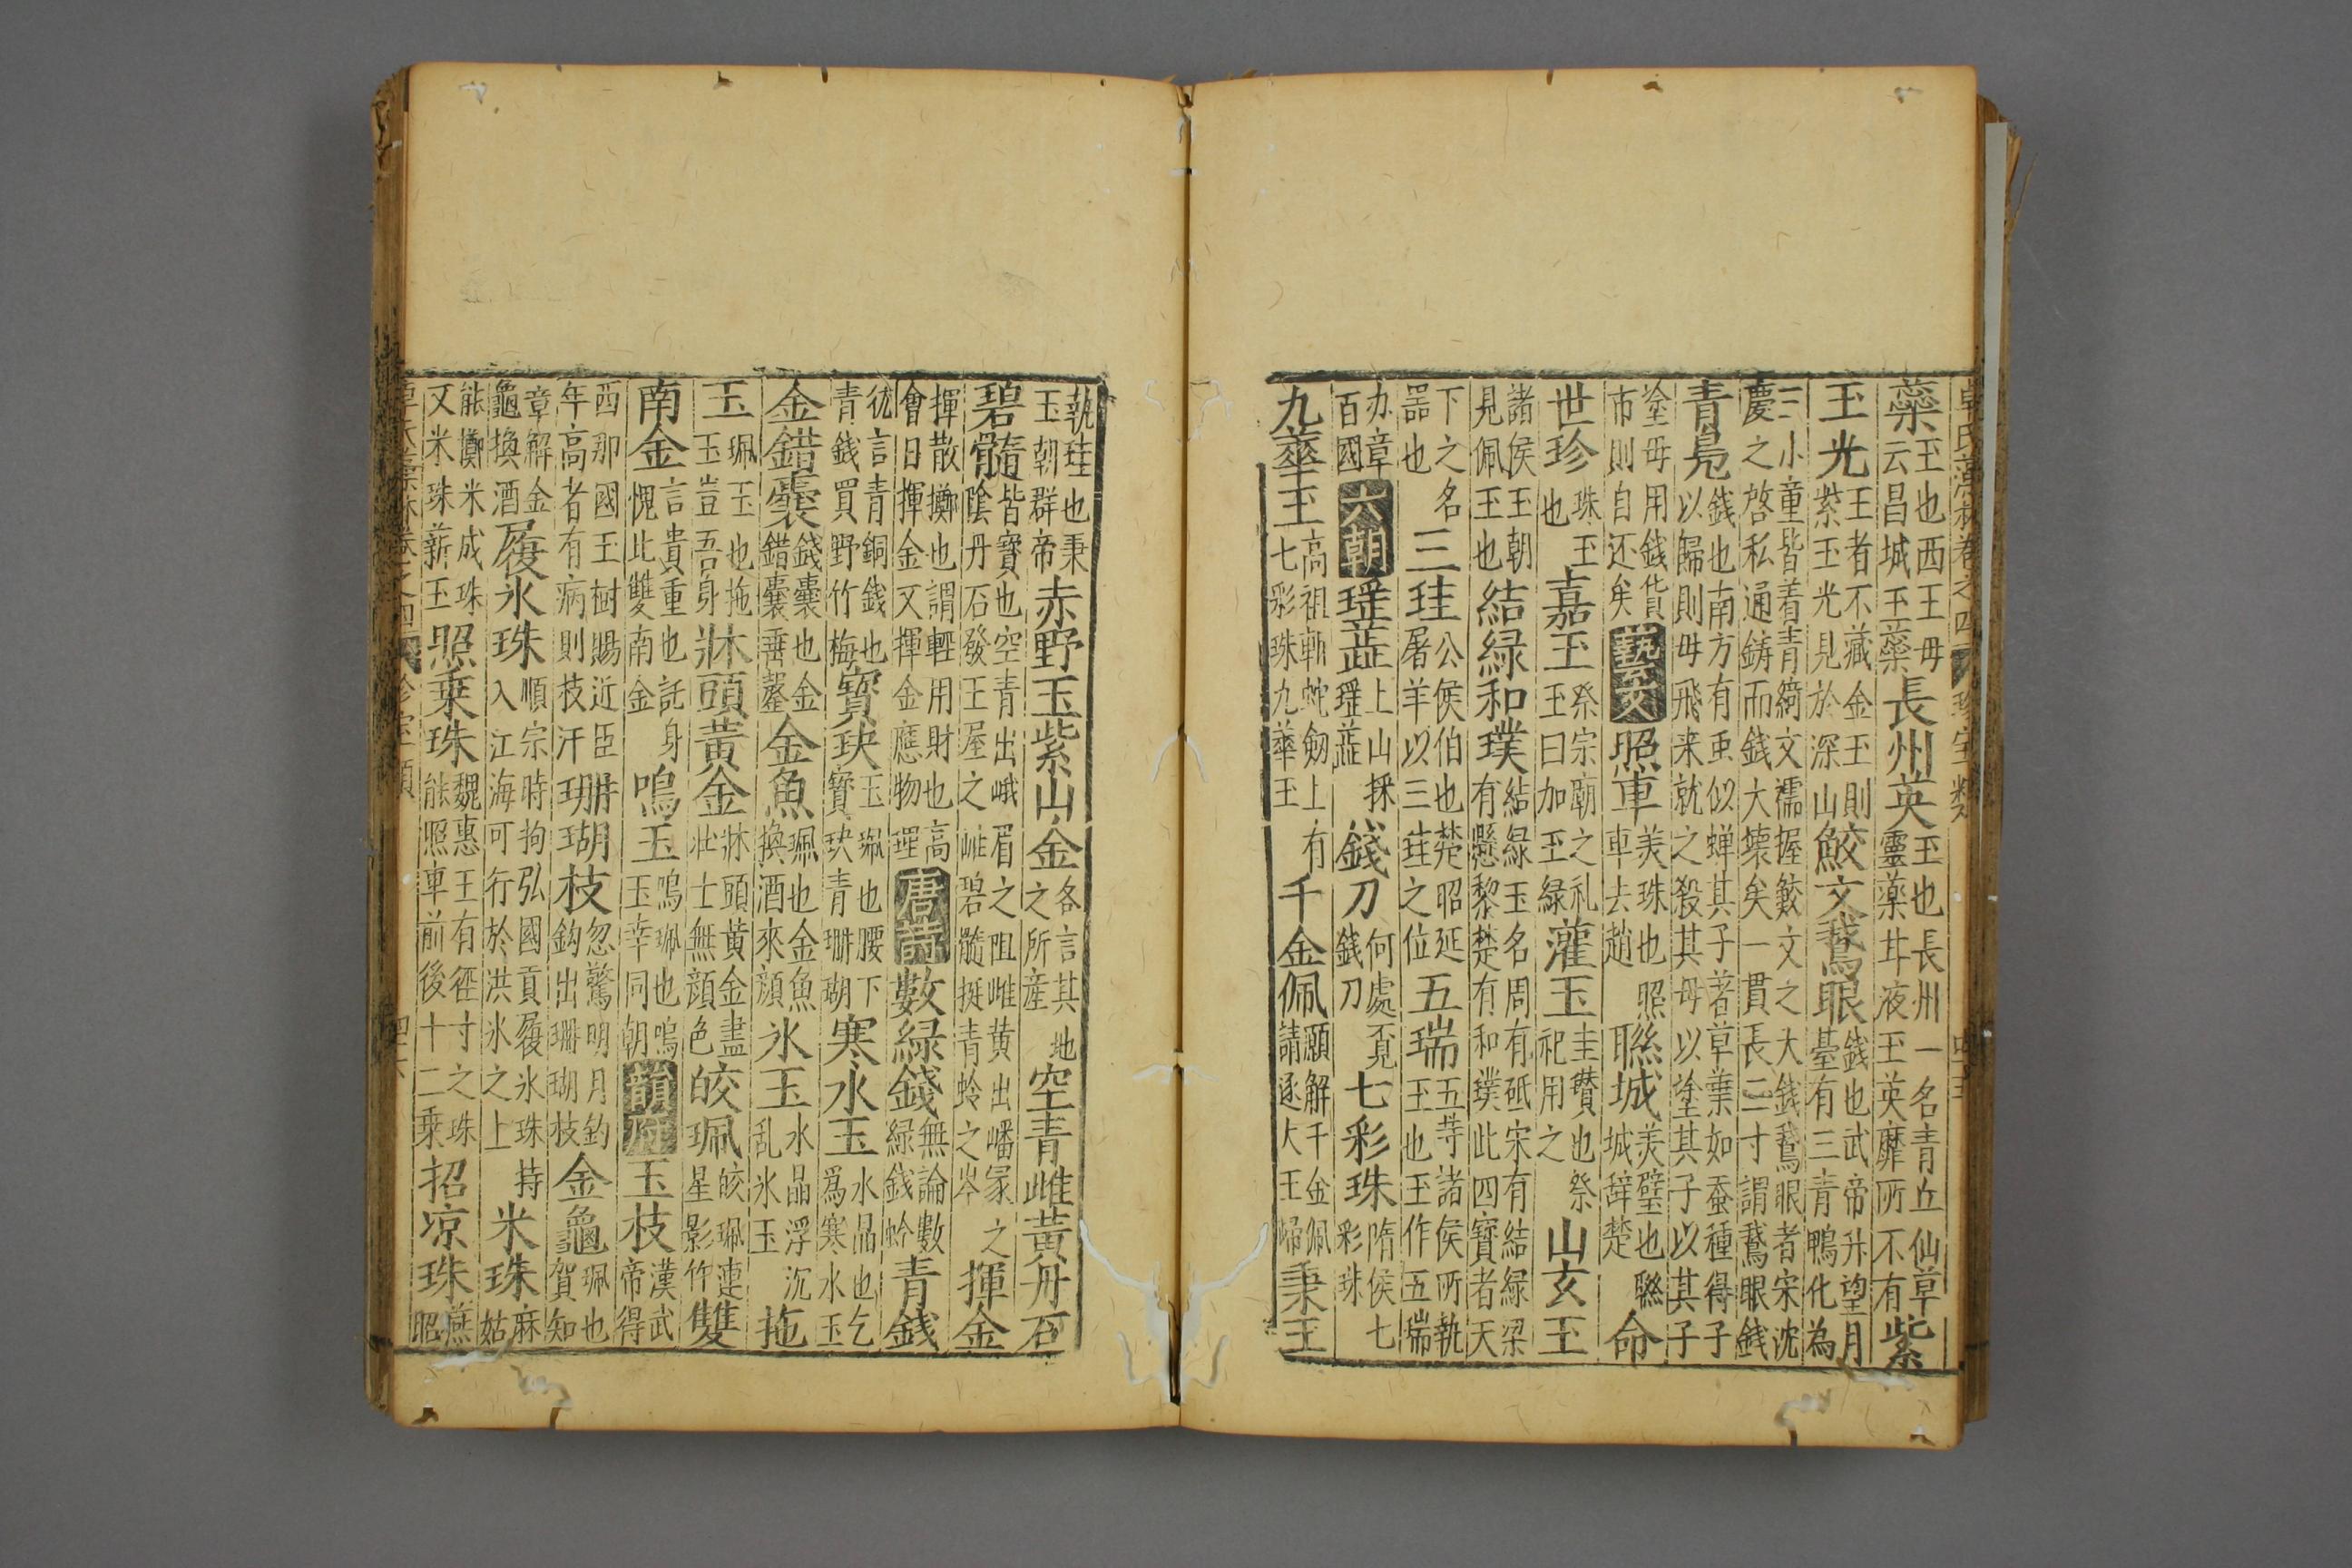 卓氏藻林卷之四 珍宝類 四十五
蘂玉也西王母云昌城玉蘂長州英玉也長州一名青丘仙草靈藥甘液玉英靡所不有紫
玉光王者不藏金玉則紫玉光見於深山鮫文鵞眼錢也武帝升望月臺有三青鴨化為
三小童皆着青綺文襦握鮫文之大錢鵞眼者宋沈慶之啓私通鑄而錢大壊矣一貫長三寸謂鵞眼錢
青鳧錢也南方有虫似蝉其子著草葉如蚕種得子以歸則母飛来就之殺其母以塗其子以其子
塗母用錢貨市則自还矣藝文照車美珠也照車去趙聮城美璧也聮城辞楚命
世珍珠玉也嘉玉祭宗廟之礼玉曰加玉緑灌玉圭瓚也祭祀用之山玄玉
諸侯玉朝見佩玉也結緑和璞結緑玉名周有砥宋有結緑梁有懸黎楚有和璞此四寶者天
下之名器也三珪公侯伯也楚昭延屠羊以三珪之位五瑞五等諸侯所執玉也王作五瑞
办章百國六朝蕋上山採蕋錢刀何處覓錢刀七彩珠隋侯七彩珠
九華玉高祖斬蛇劔上有七彩珠九華玉千金佩願解千金佩請逐大王歸秉玉
執珪也秉玉朝群帝赤野玉紫山金各言其地之所産空青雌黄丹石
碧髓皆寶也空青出峨眉之阻雌黄出嶓冢之陰丹石發王屋之岫碧髓挺青蛉之岑揮金
揮散擲也謂輕用財也高會日揮金又揮金應物理唐詩數緑錢無論數緑錢蚙青錢
犹言青銅錢也青錢買野竹梅寳玦玉珮也腰下寳玦青珊瑚寒水玉水晶也乞爲寒水玉
金錯囊錢囊也金錯囊垂罄金魚珮也金魚換酒來顔氷玉水晶浮沉乱氷玉拖
玉珮玉也拖玉豈吾身牀頭黄金牀頭黄金盡壮士無顔色皎珮皎珮連星影竹雙
南金言貴重也託身愧此雙南金鳴玉鳴珮也鳴玉幸同朝韻府玉枝漢武帝得
西那國玉樹賜近臣年高者有病則枝汗珊瑚枝忽驚明月鈎鈎出珊瑚枝金龜珮也賀知
章解金龜換酒履氷珠順宗時拘弘國貢履氷珠持入江海可行於洪氷之上米珠麻姑
能擲米成珠又米珠薪玉照乗珠魏惠王有徑寸之珠能照車前後十二乗招凉珠燕昭
卓氏藻林卷之四 珍宝類 四十六